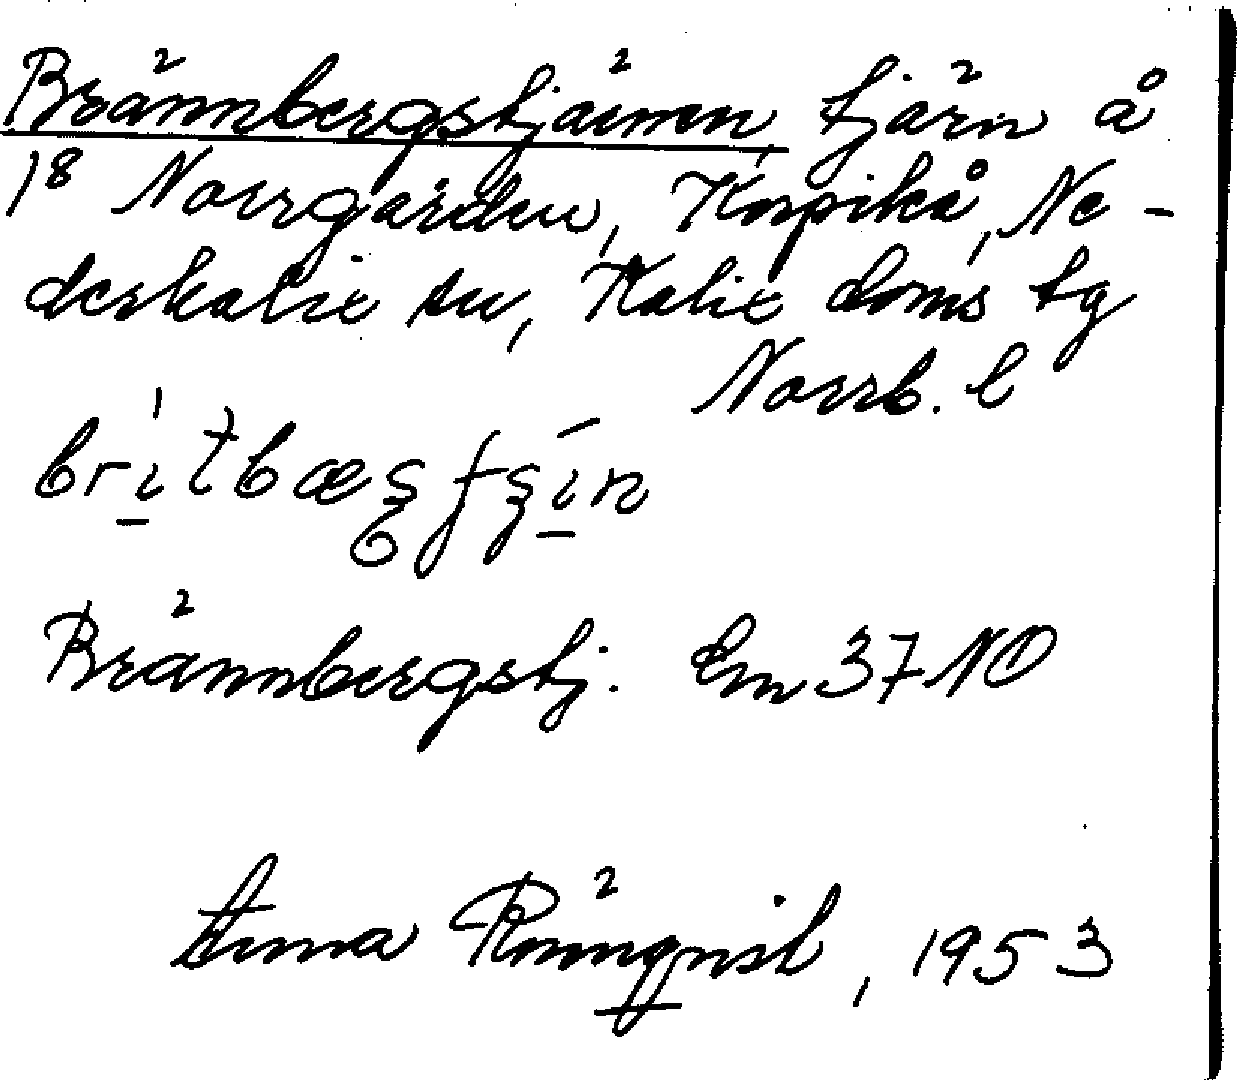 Brännbergstjärnen, tjärn å
1⁸ Norrgården, Korpikå, Ne-
derkalix sn, Kalix doms tg
Norrb. l
Brännbergstj. Em 37 NO
Anna Rönnqvist, 1953